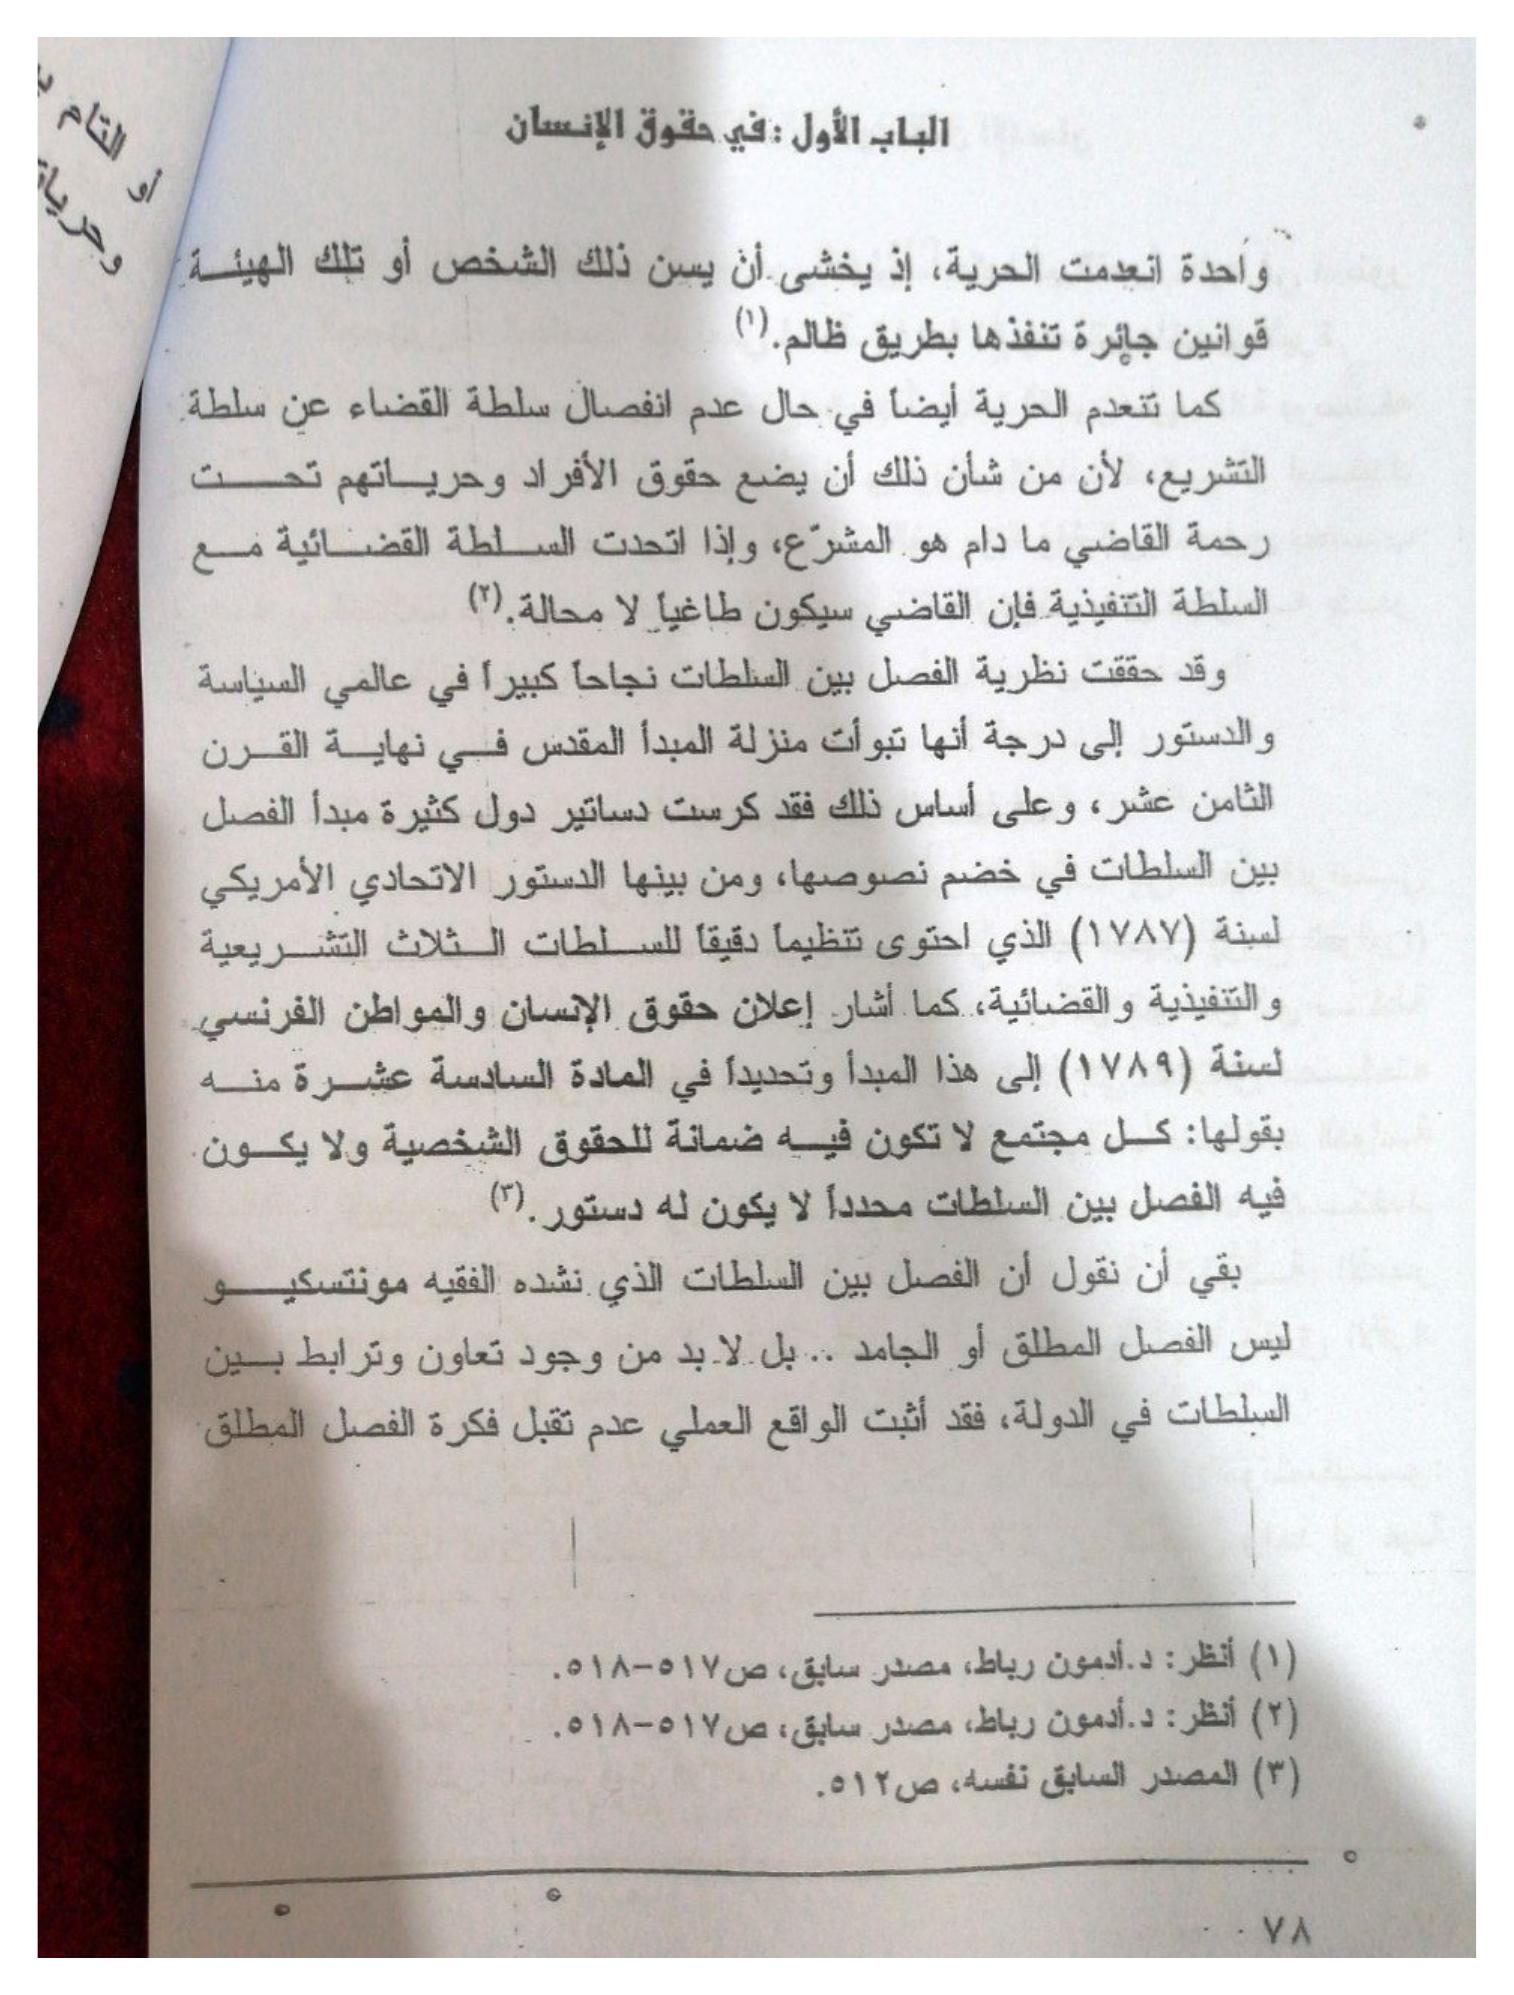 الباب الأول : في حقوق الإنسان
واحدة انعدمت الحرية، إذ يخشى أن يسن ذلك الشخص أو تلك الهيئة
قوانين جائرة تنفذها بطريق ظالم.(١)
كما تنعدم الحرية أيضاً في حال عدم انفصال سلطة القضاء عن سلطة
التشريع، لأن من شأن ذلك أن يضع حقوق الأفراد وحرياتهم تحت
رحمة القاضي ما دام هو المشرّع، وإذا اتحدت السلطة القضائية مع
السلطة التنفيذية فإن القاضي سيكون طاغياً لا محالة.(٢)
وقد حققت نظرية الفصل بين السلطات نجاحاً كبيراً في عالمي السياسة
والدستور إلى درجة أنها تبوأت منزلة المبدأ المقدس في نهاية القرن
الثامن عشر، وعلى أساس ذلك فقد كرست دساتير دول كثيرة مبدأ الفصل
بين السلطات في خضم نصوصها، ومن بينها الدستور الاتحادي الأمريكي
لسنة (١٧٨٧) الذي احتوى تنظيماً دقيقاً للسلطات الثلاث التشريعية
والتنفيذية والقضائية، كما أشار إعلان حقوق الإنسان والمواطن الفرنسي
لسنة (١٧٨٩) إلى هذا المبدأ وتحديداً في المادة السادسة عشرة منه
بقولها: كل مجتمع لا تكون فيه ضمانة للحقوق الشخصية ولا يكون
فيه الفصل بين السلطات محدداً لا يكون له دستور.(٣)
بقي أن نقول أن الفصل بين السلطات الذي نشده الفقيه مونتسكيو
ليس الفصل المطلق أو الجامد .. بل لا بد من وجود تعاون وترابط بين
السلطات في الدولة، فقد أثبت الواقع العملي عدم تقبل فكرة الفصل المطلق
(١) أنظر: د.أدمون رباط، مصدر سابق، ص٥١٧-٥١٨.
(٢) أنظر: د.أدمون رباط، مصدر سابق، ص٥١٧-٥١٨.
(٣) المصدر السابق نفسه، ص٥١٢.
٧٨
أو التام